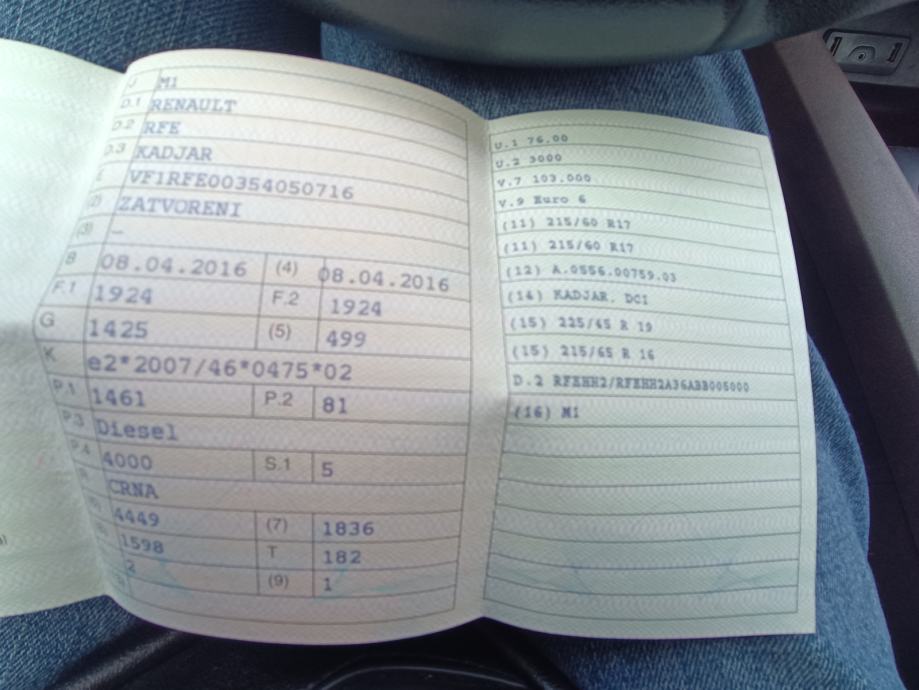 J M1
D.1 RENAULT
D.2 RFE
D.3 KADJAR
E VF1RFE00354050716
(2) ZATVORENI
(3) –
B 08.04.2016 (4) 08.04.2016
F.1 1924 F.2 1924
G 1425 (5) 499
K e2*2007/46*0475*02
P.1 1461 P.2 81
P.3 Diesel
P.4 4000 S.1 5
CRNA
4449 (7) 1836
1598 T 182
2 (9) 1
U.1 76.00
U.2 3000
V.7 103.000
V.9 Euro 6
(11) 215/60 R17
(11) 215/60 R17
(12) A.0556.00759.03
(14) KADJAR, DCI
(15) 225/45 R 19
(15) 215/65 R 16
D.2 RFEHH2/RFEHH2A36ABB005000
(16) M1